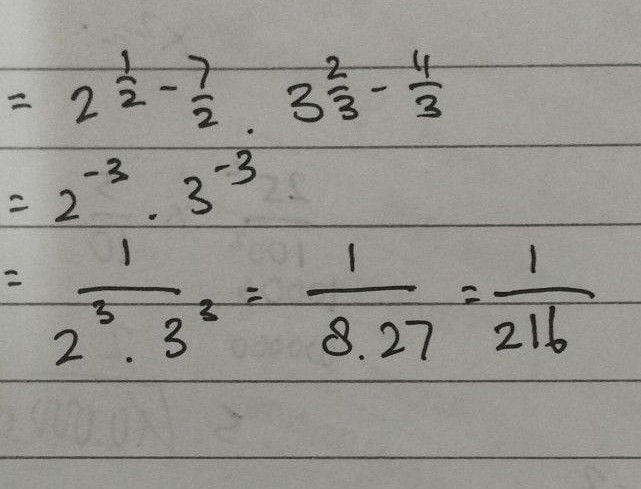 = 2^{1/2 - 7/2} . 3^{2/3 - 11/3}
= 2^{-3} . 3^{-3}
= 1/(2^3 . 3^3) = 1/(8.27) = 1/216